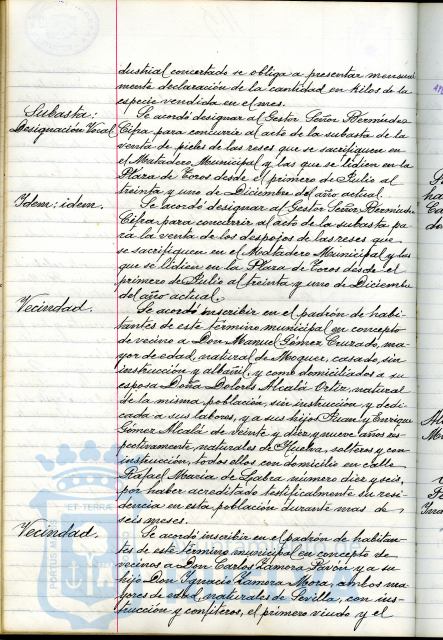 dustrial concertado se obliga a presentar mensual
mente declaración de la cantidad en kilos de la
especie vendida en el mes.
Subasta:
Designación Vocal
Se acordó designar al Gestor Señor Bermúdez
Cifra para concurrir al acto de la subasta de la
venta de pieles de las reses que se sacrifiquen en
el Matadero Municipal y las que se lidien en la
Plaza de Toros desde el primero de Julio al
treinta y uno de Diciembre del año actual.
Idem: idem.
Se acordó designar al Gestor Señor Bermúdez
Cifra para concurrir al acto de la subasta pa
ra la venta de los despojos de las reses que
se sacrifiquen en el Matadero Municipal y las
que se lidien en la Plaza de Toros desde el
primero de Julio al treinta y uno de Diciembre
del año actual.
Vecindad.
Se acordó inscribir en el padrón de habi-
tantes de este término municipal en concepto
de vecino a Don Manuel Gómez Cruzado, ma-
yor de edad, natural de Moguer, casado, sin
instrucción y albañil, y como domiciliados a su
esposa Doña Dolores Alcalá Ortiz, natural
de la misma población, sin instrucción, y dedi-
cada a sus labores, y a sus hijos Juan y Enrique
Gómez Alcalá de veinte y diez y nueve años res
pectivamente, naturales de Huelva, solteros y con
instrucción, todos ellos con domicilio en calle
Rafael María de Labra número diez y seis,
por haber acreditado testificalmente su resi-
dencia en esta población durante mas de
seis meses.
Vecindad.
Se acordó inscribir en el padrón de habitan-
tes de este término municipal en concepto de
vecinos a Don Carlos Zamora Pavón y a su
hijo Don Ignacio Zamora Mora, ambos ma-
yores de edad, naturales de Sevilla, con ins-
trucción y confiteros, el primero viudo y el